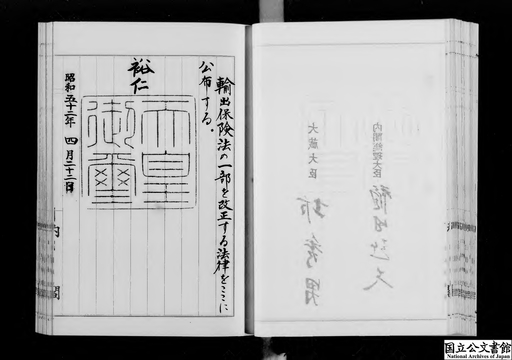 輸出保険法の一部を改正する法律をここに
公布する。
裕仁
天皇
御璽
昭和五十三年 四月二十二日
内閣
内閣総理大臣
大蔵大臣
国立公文書館
National Archives of Japan